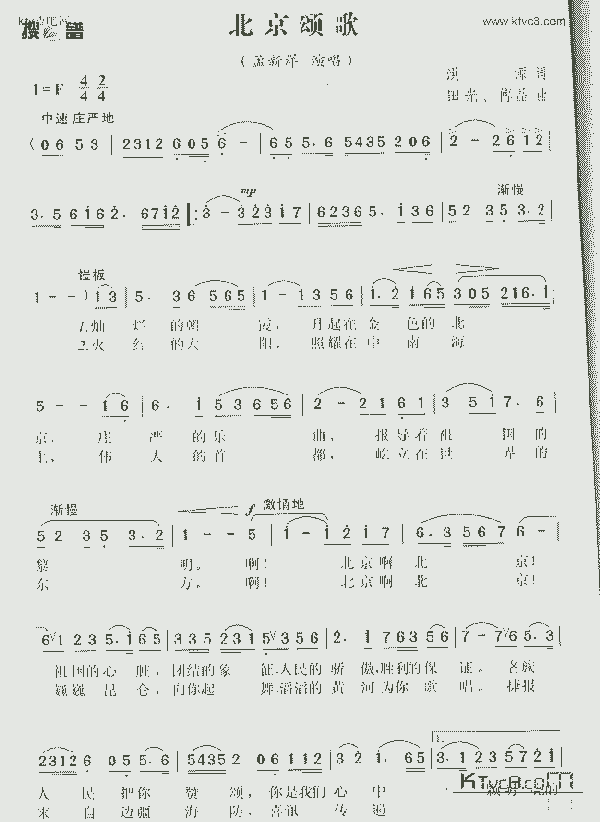 北京颂歌
www.ktvc8.com
(孟新洋 演唱)
洪 源 词
田光、傅晶 曲
1=F 4/4 2/4
中速 庄严地
(0 6 5 3 | 2312 605 6 - | 65 5. 6 5435 206 | 2 - 2612
3. 5 6162. 6712 ‖: 3 - 32317 | 62365. 136 | 52 35 3.2
mp
渐慢
慢板
1 - - ) 13 | 5. 36 565 | 1 - 1356 | 1.2 165 305 216.1
1.灿 烂 的 朝 霞, 升起在 金 色的 北
2.火 红 的太 阳, 照耀在 中 南 海
5 - - 16 | 6. 1 53656 | 2 - 2161 | 3 517. 6
京, 庄 严 的 乐 曲, 报导着 祖 国 的
上, 伟 大 的 首 都, 屹立在 世 界 的
渐慢
f 激情地
52 35 3.2 | 1 - - 5 | 1 - 1217 | 6.3567 6 -
黎 明。 啊! 北京啊 北 京!
东 方。 啊! 北京啊 北 京!
6 1 235. 165 | 335 2315 | 35 356 | 2. 1 76356 | 7 - 765.3
祖国的心 脏, 团结的象 征,人民的 骄 傲,胜利的保 证。 各族
巍巍 昆 仑, 向你起 舞,滔滔的 黄 河为你 歌 唱。 捷报
2312 6 055. 6 | 5435 2 06112 | 32 1. 65 | 3. 1235721
1.
人 民 把你 赞 颂, 你 是我们 心 中
来 自 边疆 海 防, 喜讯 传 遍
KTvc8.com